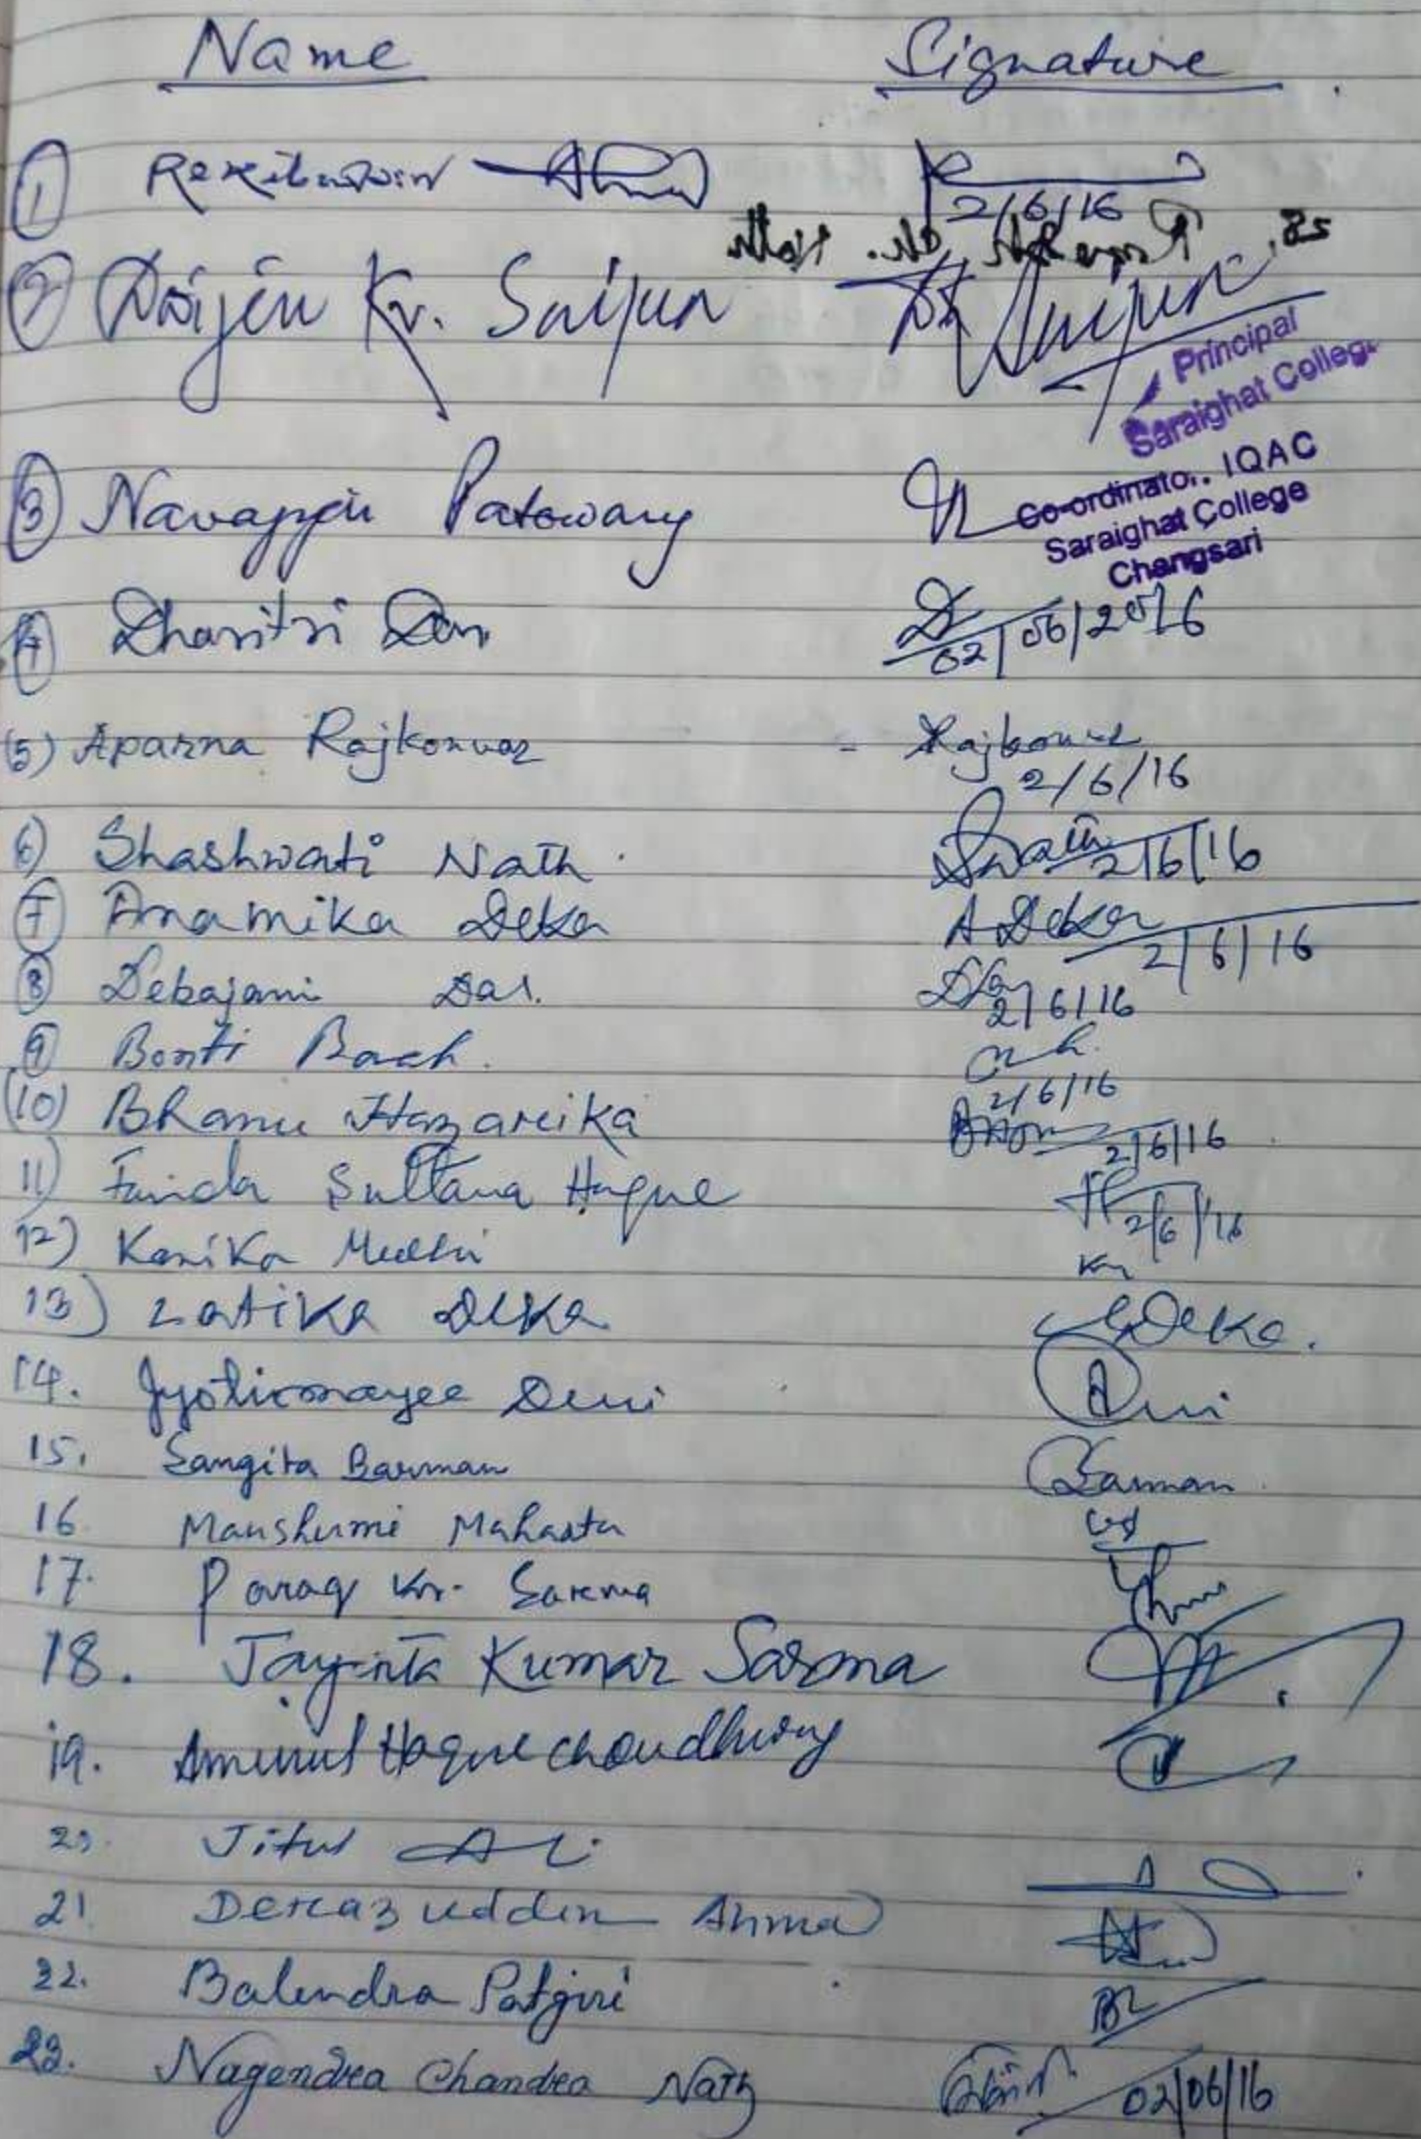 Name Signature
1 Rekibuddin
2/6/16
2 Dwijen Kr. Saijun
Principal
Saraighat College
3 Navajyoti Patowary
Co-ordinator, IQAC
Saraighat College
Changsari
4 Dharitri Das
02/06/2016
(5) Aparna Rajkonwar = Rajkonwar
2/6/16
6) Shashwati Nath SNath 2/6/16
7 Anamika Deka A Deka
2/6/16
8 Debajani Das.
2/6/16
9 Bonti Baah.
2/6/16
(10) Bhanu Hazarika
2/6/16
11) Farida Sultana Haque
2/6/16
12) Kanika Medhi
13) Latika Deka LDeka.
14. Jyotirmayee Devi Devi
15. Sangita Barman Barman
16. Maushumi Mahanta
17. Parag Kr. Sarma
18. Jayanta Kumar Sarma
19. Aminul Haque Choudhury
20. Jitul Ali
21. Derajuddin Ahmed
22. Balendra Patgiri
23. Nagendra Chandra Nath 02/06/16